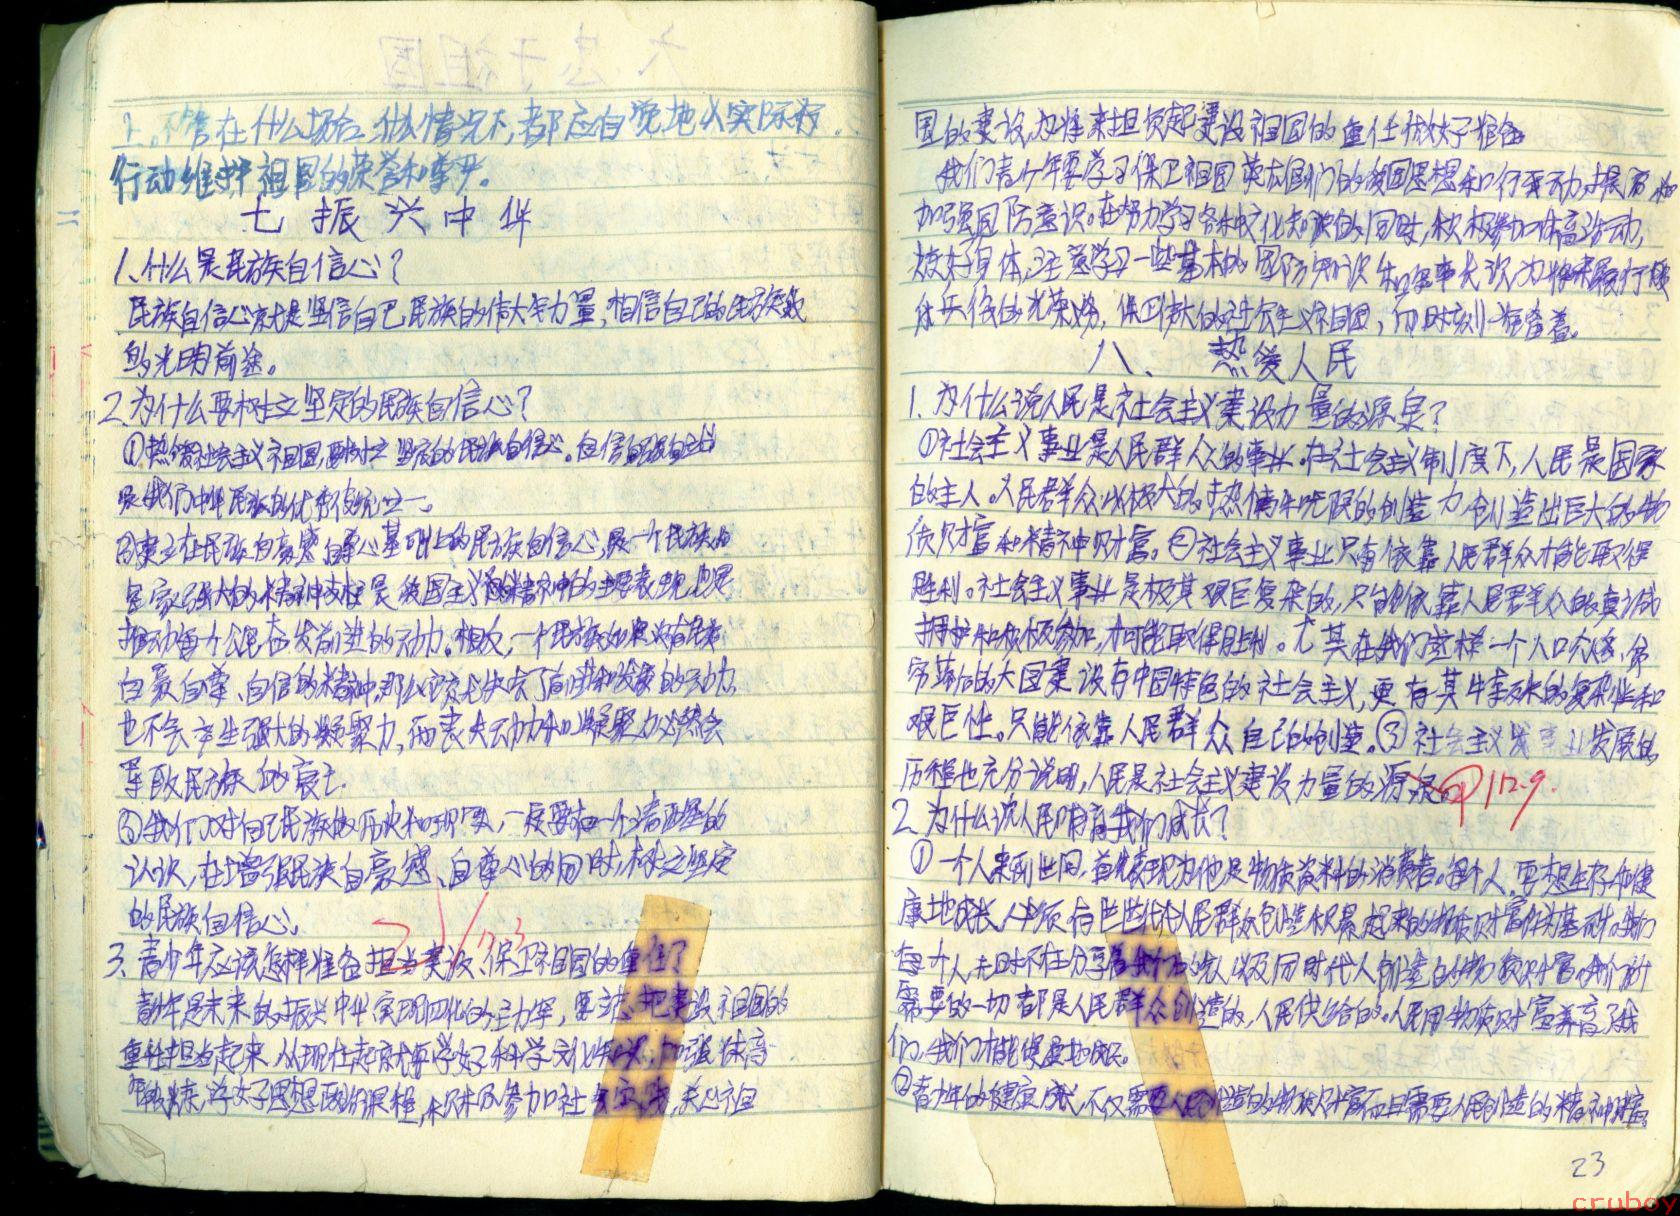 上。不管在什么场合什么情况下,都应自觉地以实际行
行动维护祖国的荣誉和尊严。
七 振兴中华
1、什么是民族自信心?
民族自信心就是坚信自己民族的伟大力量,相信自己的民族
的光明前途。
2、为什么要树立坚定的民族自信心?
①热爱社会主义祖国,要树立坚定的民族自信心。自信自强
是我们中华民族的优秀传统之一。
②建立在民族自豪感自尊心基础上的民族自信心,是一个民族和
国家强大的精神支柱是爱国主义精神的主要表现,也是
推动每个公民奋发前进的动力。相反,一个民族如果没有民族
自豪自尊、自信的精神,那么就失去了前进和发展的动力,
也不会产生强大的凝聚力,而丧失动力和凝聚力必然会
导致民族的衰亡.
③我们对自己民族的历史和现实,一定要有一个清醒的
认识,在增强民族自豪感、自尊心的同时,树立坚定
的民族自信心。
3、青少年应该怎样准备担当建设、保卫祖国的重任?
青少年是未来的振兴中华实现四化的主力军,要立志把建设祖国的
重任担当起来,从现在起就要学好科学文化知识,加强体育
学好思想政治课程,参加社会实践,关心祖
国的建设,为将来担负起建设祖国的重任做好准备
我们青少年要学习保卫祖国英雄们的爱国思想和行动
加强国防意识。在努力学习各种文化知识的同时,积极参加体育活动,
炼好身体,注意学习一些基本的国防知识和军事常识,为将来履行
兵役的光荣义务,保卫伟大的社会主义祖国,而时刻准备着。
八、热爱人民
1、为什么说人民是社会主义建设力量的源泉?
①社会主义事业是人民群众的事业。在社会主义制度下,人民是国家
的主人。人民群众以极大的热情和无限的创造力创造出巨大的物
质财富和精神财富。②社会主义事业只有依靠人民群众才能取得
胜利。社会主义事业是极其艰巨复杂的,只能依靠人民群众的真诚
拥护和积极参加,才可能取得胜利。尤其在我们这样一个人口众多、
落后的大国建设有中国特色的社会主义,更有其特殊的复杂性和
艰巨性。只能依靠人民群众自己的创造。③社会主义事业发展的
历程也充分说明,人民是社会主义建设力量的源泉。 112.9.
2、为什么说人民哺育我们成长?
①一个人来到世间,首先表现为他是物质资料的消费者。每个人,要想生存和健
康地成长,必须有世世代代人民群众创造积累起来的物质财富作为基础。我们
每个人,无时不在分享着前人以及同时代人创造的物质财富。我们所
需要的一切都是人民群众创造的,人民供给的。人民用物质财富养育了我
们,我们才能健康地成长。
②青少年的健康成长,不仅需要人民创造的物质财富而且需要人民创造的精神财富。
23
cruboy